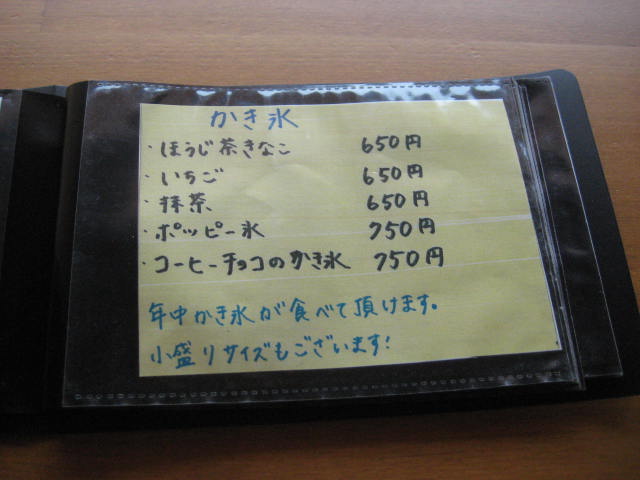 かき氷
・ほうじ茶きなこ 650円
・いちご 650円
・抹茶、 650円
・ポッピー氷 750円
・コーヒーチョコのかき氷 750円
年中かき氷が食べて頂けます。
小盛りサイズもございます!